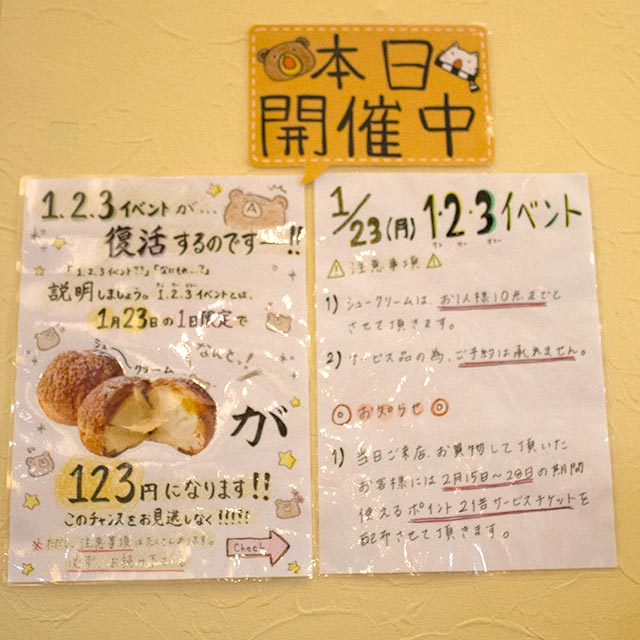 本日
開催中
1.2.3イベントが…
復活するのですー!!
「1.2.3イベント??」「なにそれ…?」
説明しましょう。1.2.3イベントとは、
1月23日の1日限定で
なんと、!
シュー
クリーム
が
123円になります!!
このチャンスをお見逃しなく!!!!!
※ただし、注意事項はたくさんあります。
必ず、お読み下さい
Check
1/23(月) 1・2・3イベント
ワン ツー スリー
⚠注意事項⚠
1) シュークリームは、お1人様10点までと
させて頂きます。
2) サービス品の為、ご予約は承れません。
◎お知らせ◎
1) 当日ご来店、お買物して頂いた
お客様には2月15日~28日の期間
使えるポイント2倍サービスチケットを
配布させて頂きます。